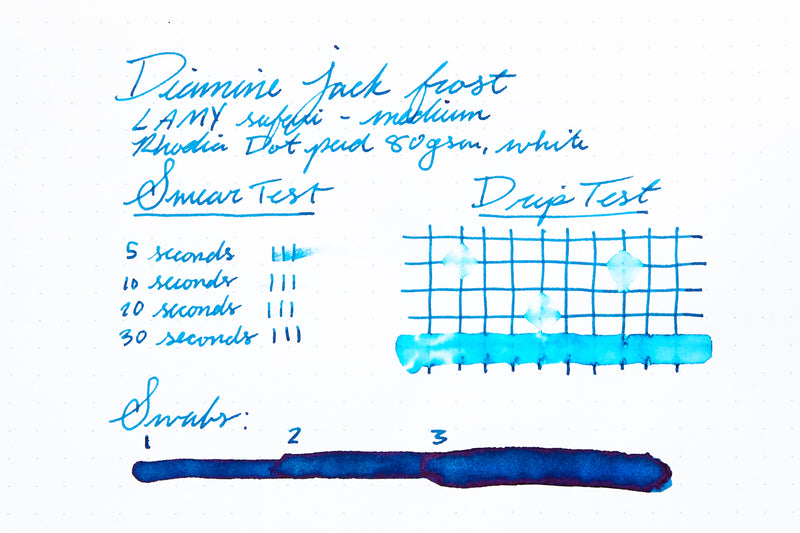 Diamine Jack Frost
LAMY safari - medium
Rhodia Dot pad 80gsm, white
Smear Test
5 seconds
10 seconds
20 seconds
30 seconds
Drip Test
Swabs:
1 2 3